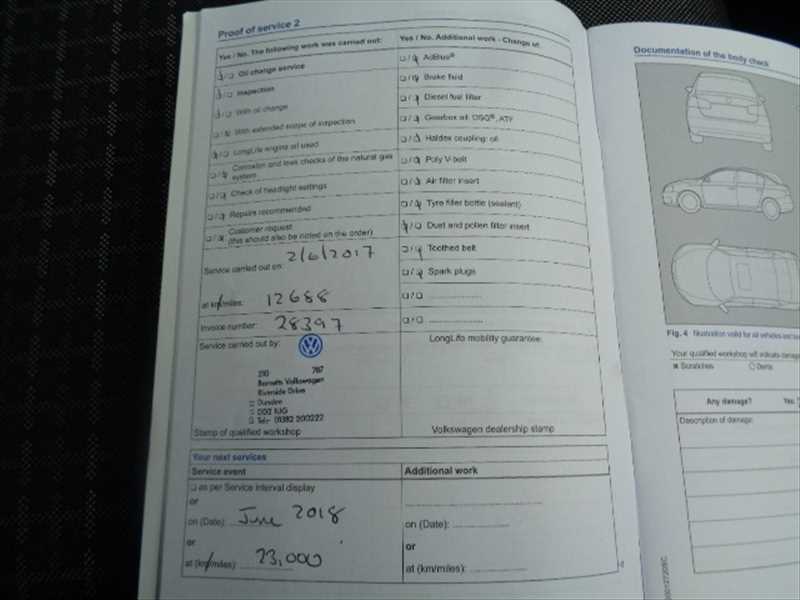 Proof of service 2
Yes / No. The following work was carried out:
Oil change service
Inspection
With oil change
With extended scope of inspection
LongLife engine oil used
Corrosion and leak checks of the natural gas
system
Check of headlight settings
Repairs recommended
Customer request
(this should also be noted on the order)
Service carried out on: 2/6/2017
at km/miles: 12688
Invoice number: 28397
Service carried out by:
210 787
Barnetts Volkswagen
Riverside Drive
Dundee
DD2 1UG
Tel: 01382 200222
Stamp of qualified workshop
Yes / No. Additional work - Change of:
AdBlue®
Brake fluid
Diesel fuel filter
Gearbox oil: DSG®, ATF
Haldex coupling: oil
Poly V-belt
Air filter insert
Tyre filler bottle (sealant)
Dust and pollen filter insert
Toothed belt
Spark plugs
LongLife mobility guarantee:
Volkswagen dealership stamp
Your next services
Service event
as per Service interval display
or
on (Date): June 2018
or
at (km/miles): 23,000
Additional work
on (Date):
or
at (km/miles):
Documentation of the body check
Fig. 4 Illustration valid for all vehicles and
Your qualified workshop will indicate
Scratches Dents
Any damage? Yes
Description of damage: